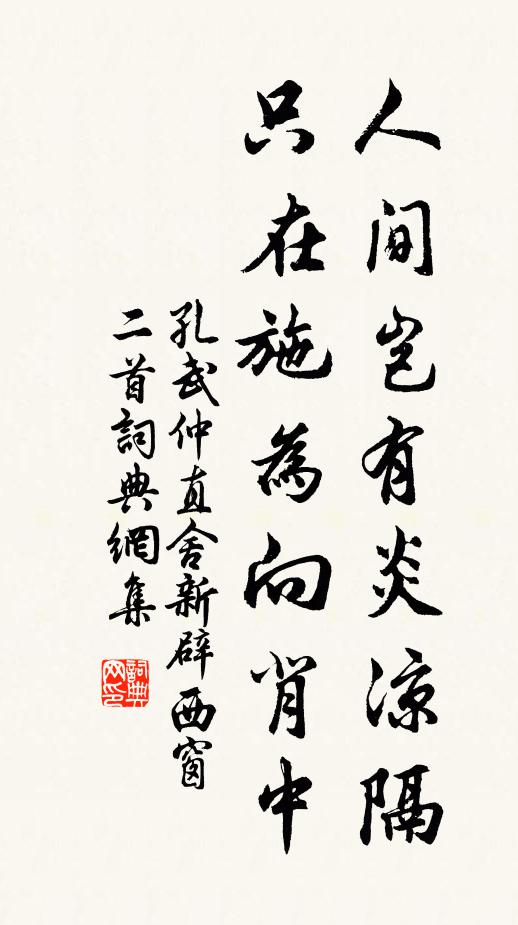 人间岂有炎凉隔
只在施為向背中
孔武仲直舍新辟西窗
二首詞典網集
詞典网印